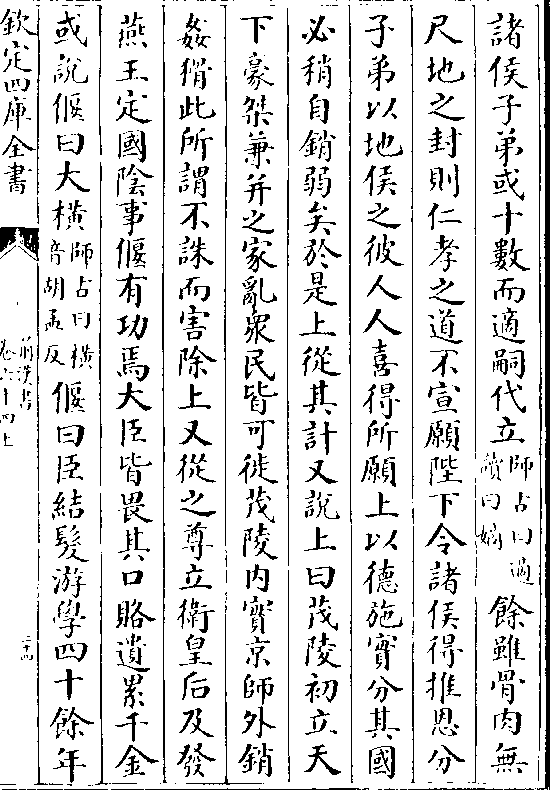 諸侯子弟或十數而適嗣代立師古曰適讀曰嫡餘雖骨肉無
尺地之封則仁孝之道不宣願陛下令諸侯得推恩分
子弟以地侯之彼人人喜得所願上以德施實分其國
必稍自銷弱矣於是上從其計又說上曰茂陵初立天
下豪桀兼并之家亂衆民皆可徙茂陵内實京師外銷
姦猾此所謂不誅而害除上又從之尊立衛皇后及發
燕王定國陰事偃有功焉大臣皆畏其口賂遺累千金
或說偃曰大橫師古曰橫音胡孟反偃曰臣結髮游學四十餘年
欽定四庫全書
前漢書
卷六十四上
二十四